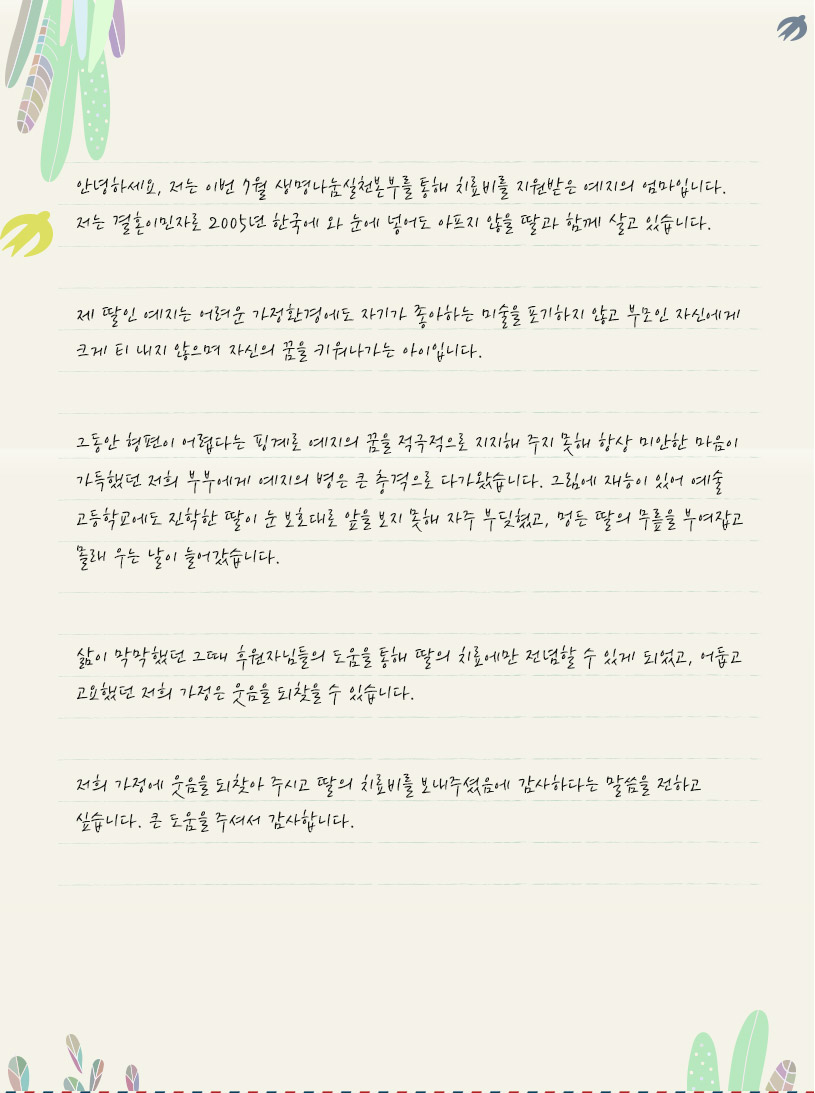 안녕하세요, 저는 이번 7월 생명나눔실천본부를 통해 치료비를 지원받은 예지의 엄마입니다.
저는 결혼이민자로 2005년 한국에 와 눈에 넣어도 아프지 않을 딸과 함께 살고 있습니다.
제 딸인 예지는 어려운 가정환경에도 자기가 좋아하는 미술을 포기하지 않고 부모인 자신에게
크게 티 내지 않으며 자신의 꿈을 키워나가는 아이입니다.
그동안 형편이 어렵다는 핑계로 예지의 꿈을 적극적으로 지지해 주지 못해 항상 미안한 마음이
가득했던 저희 부부에게 예지의 병은 큰 충격으로 다가왔습니다. 그림에 재능이 있어 예술
고등학교에도 진학한 딸이 눈 보호대로 앞을 보지 못해 자주 부딪혔고, 멍든 딸의 무릎을 부여잡고
몰래 우는 날이 늘어갔습니다.
삶이 막막했던 그때 후원자님들의 도움을 통해 딸의 치료에만 전념할 수 있게 되었고, 어둡고
고요했던 저희 가정은 웃음을 되찾을 수 있습니다.
저희 가정에 웃음을 되찾아 주시고 딸의 치료비를 보내주셨음에 감사하다는 말씀을 전하고
싶습니다. 큰 도움을 주셔서 감사합니다.